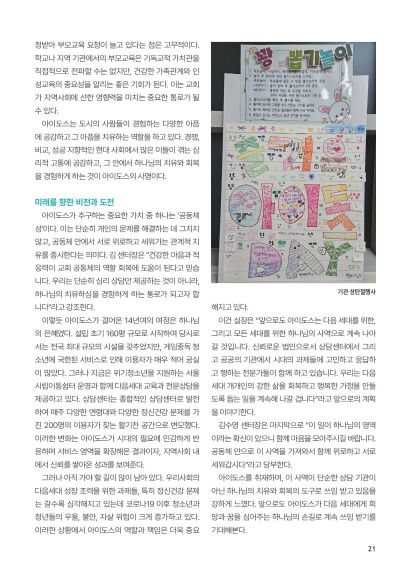 정받아 부모교육 요청이 늘고 있다는 점은 고무적이다.
학교나 지역 기관에서의 부모교육은 기독교적 가치관을
직접적으로 전파할 수는 없지만, 건강한 가족관계와 인
성교육의 중요성을 알리는 좋은 기회가 된다. 이는 교회
가 지역사회에 선한 영향력을 미치는 중요한 통로가 될
수 있다.
아이도스는 도시의 사람들이 경험하는 다양한 아픔
에 공감하고 그 아픔을 치유하는 역할을 하고 있다. 경쟁,
비교, 성공 지향적인 현대 사회에서 많은 이들이 겪는 심
리적 고통에 공감하고, 그 안에서 하나님의 치유와 회복
을 경험하게 하는 것이 아이도스의 사명이다.
미래를 향한 비전과 도전
아이도스가 추구하는 중요한 가치 중 하나는 '공동체
성'이다. 이는 단순히 개인의 문제를 해결하는 데 그치지
않고, 공동체 안에서 서로 위로하고 세워가는 관계적 치
유를 중시한다는 의미다. 김 센터장은 "건강한 마음과 적
응력이 교회 공동체의 역할 회복에 도움이 된다고 믿습
니다. 우리는 단순히 심리 상담만 제공하는 것이 아니라,
하나님의 치유하심을 경험하게 하는 통로가 되고자 합
니다"라고 강조한다.
이렇듯 아이도스가 걸어온 14년여의 여정은 하나님
의 은혜였다. 설립 초기 160평 규모로 시작하여 당시로
서는 전국 최대 규모의 시설을 갖추었지만, 게임중독 청
소년에 국한된 서비스로 인해 이용자가 매우 적어 공실
이 많았다. 그러나 지금은 위기청소년을 지원하는 서울
시립이동쉼터 운영과 함께 다음세대 교육과 전문상담을
제공하고 있다. 상담센터는 종합적인 상담센터로 발전
하여 매주 다양한 연령대와 다양한 정신건강 문제를 가
진 200명의 이용자가 찾는 활기찬 공간으로 변모했다.
이러한 변화는 아이도스가 시대의 필요에 민감하게 반
응하며 서비스 영역을 확장해온 결과이자, 지역사회 내
에서 신뢰를 쌓아온 성과를 보여준다.
그러나 아직 가야 할 길이 많이 남아 있다. 우리사회의
다음세대 성장 조력을 위한 과제들, 특히 정신건강 문제
는 갈수록 심각해지고 있는데 코로나19 이후 청소년과
청년들의 우울, 불안, 자살 위험이 크게 증가하고 있다.
이러한 상황에서 아이도스의 역할과 책임은 더욱 중요
꽝 없는 뽑기놀이
기관 성탄절행사
해지고 있다.
이건 실장은 "앞으로도 아이도스는 다음 세대를 위한,
그리고 모든 세대를 위한 하나님의 사역으로 계속 나아
갈 것입니다. 신뢰로운 법인으로서 상담센터에서 그리
고 공공의 기관에서 시대의 과제들에 고민하고 응답하
고 행하는 전문가들이 함께 하고 있습니다. 우리는 다음
세대 개개인의 강한 삶을 회복하고 행복한 가정을 만들
도록 돕는 일을 계속해 나갈 겁니다"라고 앞으로의 계획
을 이야기한다.
김수영 센터장은 마지막으로 "이 일이 하나님의 영역
이라는 확신이 있으니 함께 마음을 모아주시길 바랍니다.
공동체 안으로 이 사역을 가져와서 함께 위로하고 서로
세워갑시다"라고 당부한다.
아이도스를 취재하며, 이 사역이 단순한 상담 기관이
아닌 하나님의 치유와 회복의 도구로 쓰임 받고 있음을
강하게 느꼈다. 앞으로도 아이도스가 다음 세대에게 희
망과 꿈을 심어주는 하나님의 손길로 계속 쓰임 받기를
기대해본다.
21